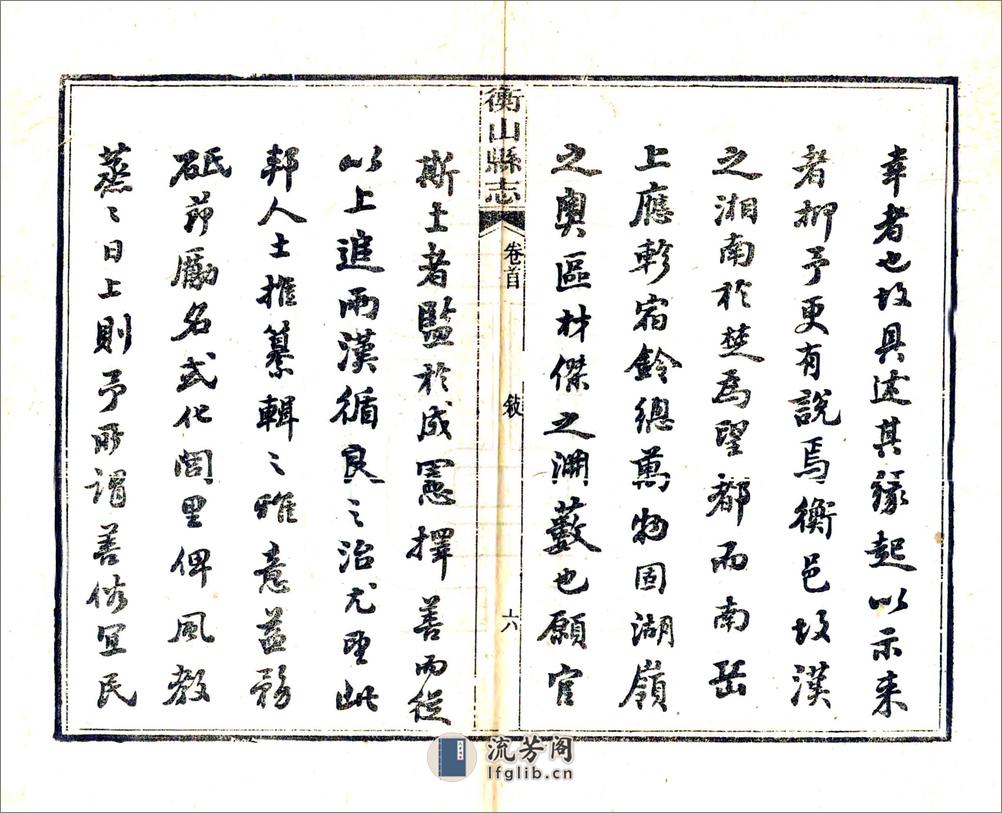 幸者也故具述其緣起以示来
者抑予更有說焉衡邑故漢
之湘南於楚為望都而南岳
上應軫宿鈐總萬物固湖嶺
之奧區材傑之淵藪也願官
衡山縣志
卷首
敍
六
斯土者監於成憲擇善而從
以上追兩漢循良之治尤望此
邦人士推纂輯之雅意益務
砥節勵名式化閭里俾風教
蒸々日上則予所謂善俗宜民
流芳阁
lfglib.cn